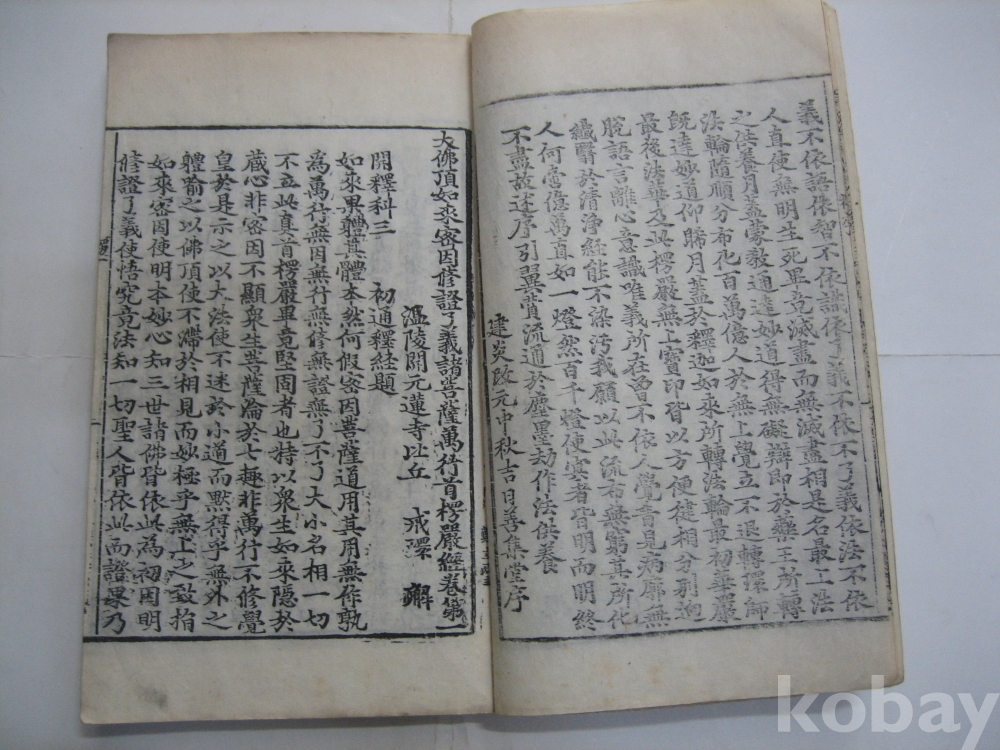 義不依語依智不依識依了義不依不了義依法不依
人直使無明生死畢竟滅盡而無滅盡相是名最上法
之供養月蓋蒙教通達妙道得無礙辯即於藥王所轉
法輪隨順分布化百萬億人於無上覺立不退轉環師
旣達妙道仰睎月蓋於釋迦如來所轉法輪最初華嚴
最後法華及此楞嚴無上寶印皆以方便徒相分別迥
脫語言離心意識唯義所在曾不依人覺音見病廓無
纖翳於清淨經能不染汚我願以此流布無窮其所化
人何啻億萬直如一燈然百千燈使冥者皆明而明終
不盡故述序引翼贊流通於塵墨劫作法供養
建炎改元中秋吉日善集堂序
大佛頂如來密因修證了義諸菩薩萬行首楞嚴經卷第
溫陵開元蓮寺比丘 戒環 解
開釋科三 初通釋経題
如來果體其體本然何假密因菩薩道用其用無作孰
為萬行無因無行無修無證無了不了大小名相一切
不立此真首楞嚴畢竟堅固者也特以衆生如來隱於
蔵心非密因不顯衆生菩薩淪於七趣非萬行不修覺
皇於是示之以大法使不迷於小道而黙得乎無外之
軆喻之以佛頂使不滯於相見而妙極乎無上之致指
如來密因使明本妙心知三世諸佛皆依此為初因明
修證了義使悟究竟法知一切聖人皆依此而證果乃
kobay